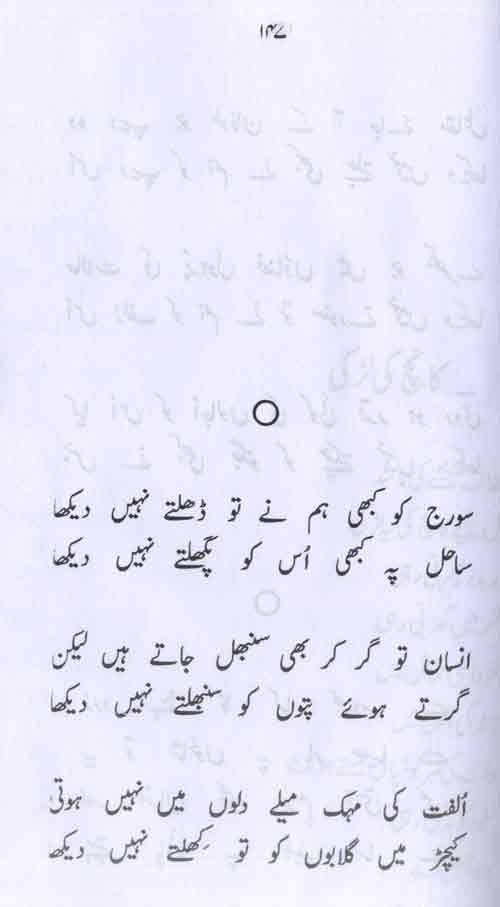 ۱۴۷
سورج کو کبھی ہم نے تو ڈھلتے نہیں دیکھا
ساحل پہ کبھی اُس کو پگھلتے نہیں دیکھا
انسان تو گر کر بھی سنبھل جاتے ہیں لیکن
گرتے ہوئے پتوں کو سنبھلتے نہیں دیکھا
اُلفت کی مہک میلے دلوں میں نہیں ہوتی
کیچڑ میں گلابوں کو تو کِھلتے نہیں دیکھ